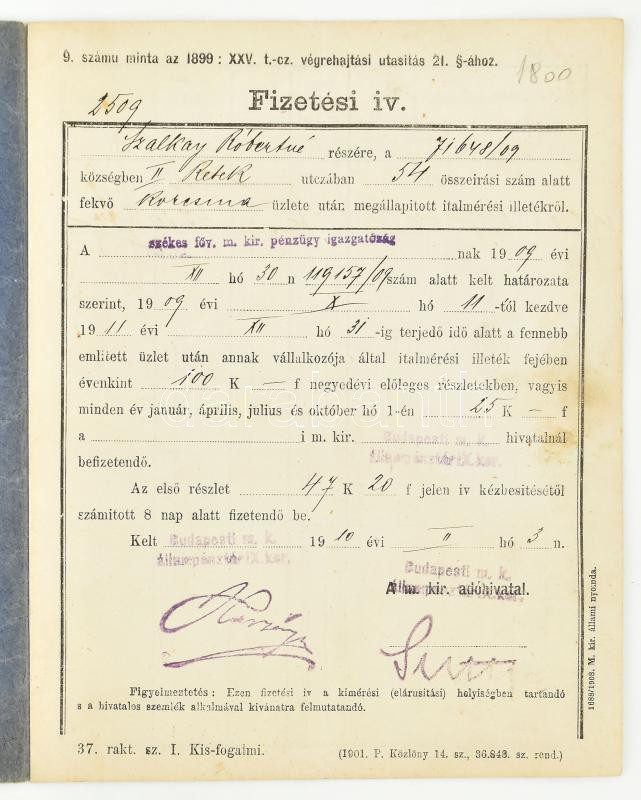 9. számu minta az 1899 : XXV. t.-cz. végrehajtási utasitás 21. §-ához.
1800
2509
Fizetési iv.
Szalkay Róbertné részére, a 71648/09
községben II Retek utczában 54 összeirási szám alatt
fekvő Korcsma üzlete után megállapitott italmérési illetékről.
A székes főv. m. kir. pénzügy igazgatóság nak 1909 évi
XII hó 30 n 119157/09 szám alatt kelt határozata
szerint, 1909 évi X hó 11-től kezdve
1911 évi XII hó 31-ig terjedő idő alatt a fennebb
emlitett üzlet után annak vállalkozója által italmérési illeték fejében
évenkint 100 K — f negyedévi előleges részletekben, vagyis
minden év január, április, julius és október hó 1-én 25 K — f
a i m. kir. Budapesti m. k. hivatalnál
állampénztár IX. ker.
befizetendő.
Az első részlet 47 K 20 f jelen iv kézbesitésétől
számitott 8 nap alatt fizetendő be.
Kelt Budapesti m. k. 1910 évi II hó 3 n.
állampénztár IX. ker.
Budapesti m. k.
állampénztár IX. ker.
A m. kir. adóhivatal.
Figyelmeztetés : Ezen fizetési iv a kimérési (elárusitási) helyiségben tartandó
s a hivatalos szemlék alkalmával kivánatra felmutatandó.
37. rakt. sz. I. Kis-fogalmi.
(1901. P. Közlöny 14. sz., 36.848. sz. rend.)
1688/1908. M. kir. állami nyomda.
darabanth